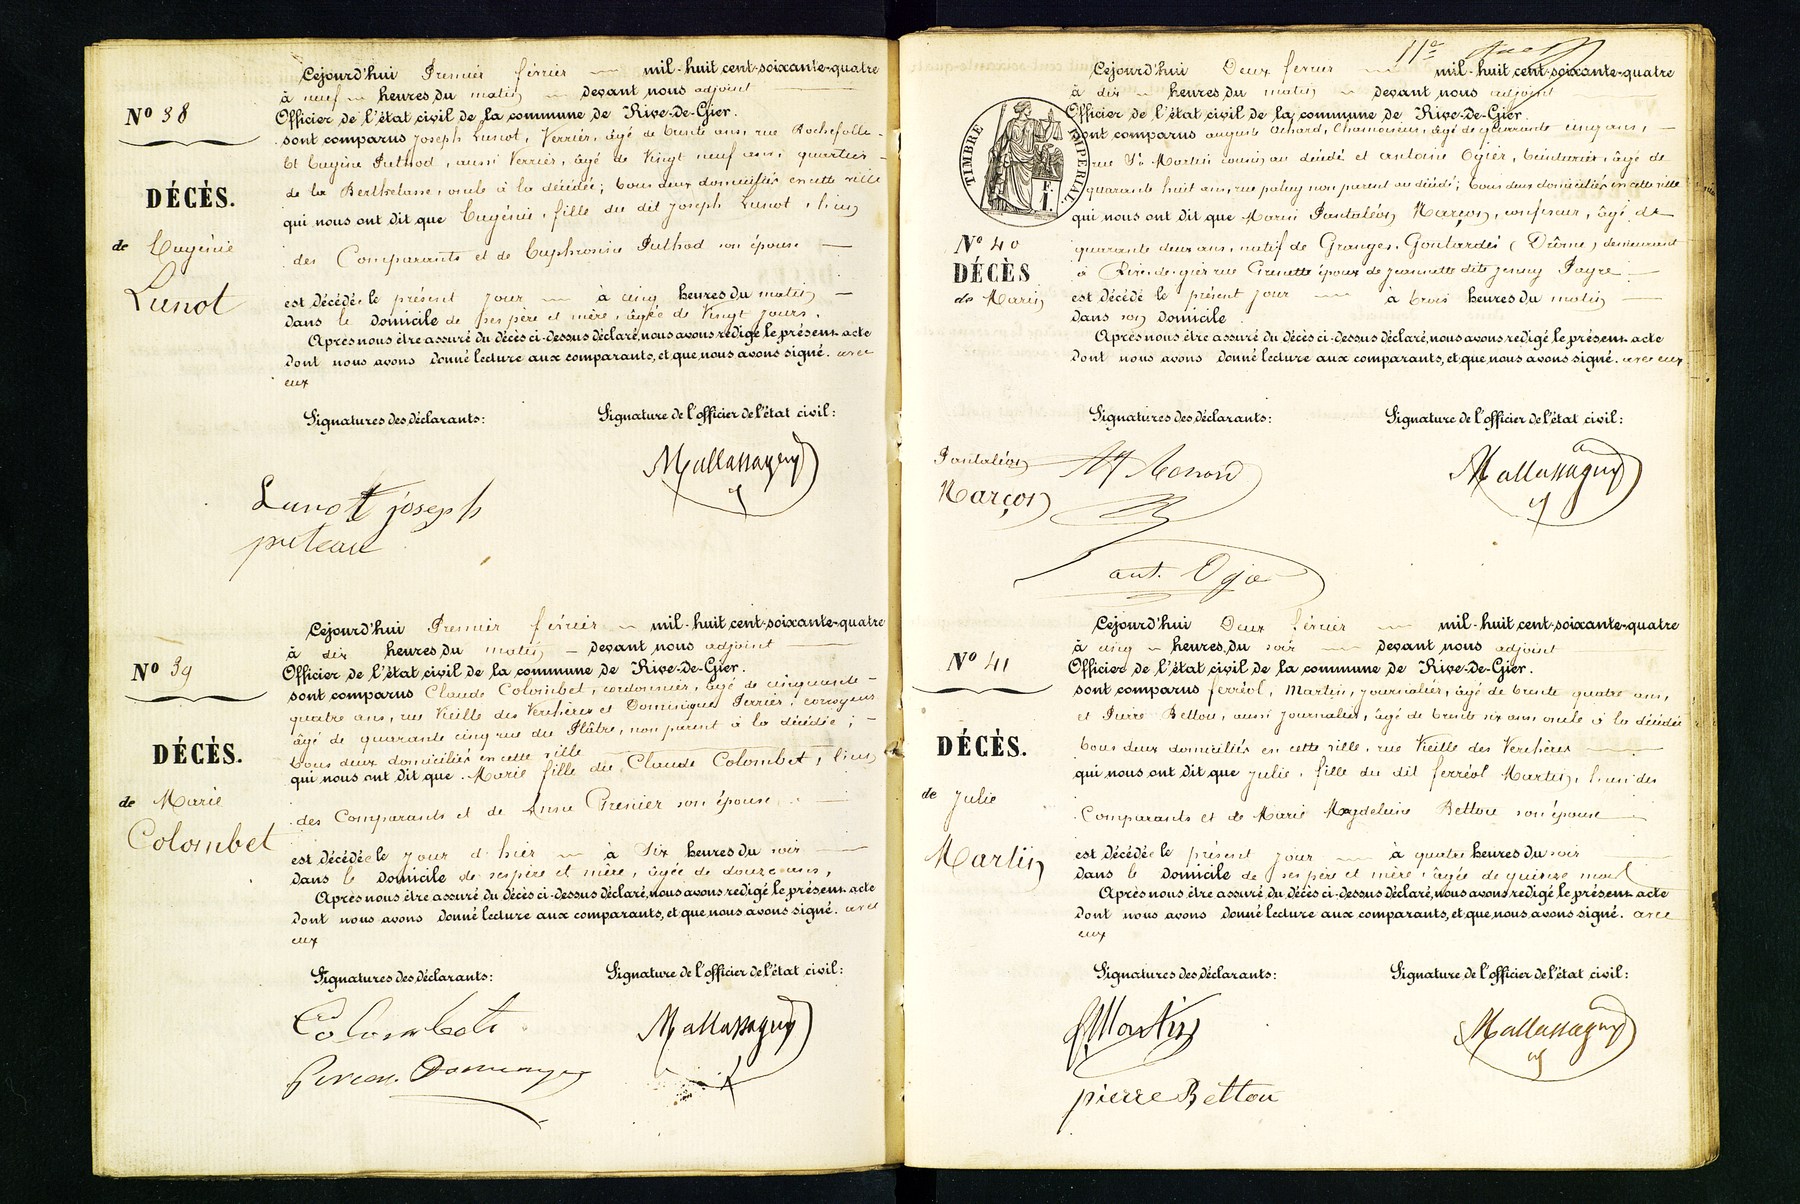 Nº 38
DÉCÈS.
de Eugénie
Lunot
Cejourd'hui Premier février mil-huit cent-soixante-quatre
à neuf heures du matin devant nous adjoint
Officier de l'état civil de la commune de Rive-De-Gier.
sont comparus Joseph Lunot, Verrier, âgé de trente ans, rue Rochefolle
Et Eugène Puthod, aussi Verrier, âgé de Vingt neuf ans, quartier
de la Berthelasse, oncle à la décédée; tous deux domiciliés en cette ville
qui nous ont dit que Eugénie, fille du dit Joseph Lunot, l'un
des Comparants et de Euphronie Puthod son épouse
est décédée le présent jour à cinq heures du matin
dans le domicile de ses père et mère, âgée de Vingt jours.
Après nous être assuré du décès ci-dessus déclaré, nous avons rédigé le présent acte
dont nous avons donné lecture aux comparants, et que nous avons signé. avec
eux
Signatures des déclarants: Signature de l'officier de l'état civil:
Mallassagny
Lunot joseph
Nº 39
DÉCÈS.
de Marie
Colombet
Cejourd'hui Premier février mil-huit cent-soixante-quatre
à dix heures du matin devant nous adjoint
Officier de l'état civil de la commune de Rive-De-Gier.
sont comparus Claude Colombet, cordonnier, âgé de cinquante-
quatre ans, rue Vieille des Verchères et Dominique Perrier, corroyeur
âgé de quarante cinq rue du Plâtre, non parent à la décédée;
tous deux domiciliés en cette ville
qui nous ont dit que Marie fille du Claude Colombet, l'un
des Comparants et de Anne Grenier son épouse
est décédée le jour d'hier à Six heures du soir
dans le domicile de ses père et mère, âgée de douze ans,
Après nous être assuré du décès ci-dessus déclaré, nous avons rédigé le présent acte
dont nous avons donné lecture aux comparants, et que nous avons signé. avec
eux
Signatures des déclarants: Signature de l'officier de l'état civil:
Colombet Mallassagny
11e
TIMBRE IMPÉRIAL
F.
1.
Nº 40
DÉCÈS
de Marin
Pantaléon
Marçon
Cejourd'hui Deux février mil-huit cent-soixante-quatre
à dix heures du matin devant nous adjoint
Officier de l'état civil de la commune de Rive-De-Gier.
sont comparus auguste Achard, Chamoiseur, âgé de quarante cinq ans,
rue St Martin cousin au décédé et antoine Ogier, teinturier, âgé de
quarante huit ans, rue paluy non parent au décédé; tous deux domiciliés en cette ville
qui nous ont dit que Marin Pantaléon Marçon, confiseur, âgé de
quarante deux ans, natif de Granges-Gontardes (Drôme) demeurant
à Rive-de-gier rue Grenette époux de jeannette dite jenny Payre
est décédé le présent jour à trois heures du matin
dans son domicile
Après nous être assuré du décès ci-dessus déclaré, nous avons rédigé le présent acte
dont nous avons donné lecture aux comparants, et que nous avons signé. avec eux
Signatures des déclarants: Signature de l'officier de l'état civil:
Mallassagny
ant. Ogier
Nº 41
DÉCÈS.
de Julie
Martin
Cejourd'hui Deux février mil-huit cent-soixante-quatre
à cinq heures du soir devant nous adjoint
Officier de l'état civil de la commune de Rive-De-Gier.
sont comparus ferréol, Martin, journalier, âgé de trente quatre ans,
et Pierre Bettou, aussi journalier, âgé de trente six ans oncle à la décédée
tous deux domiciliés en cette ville, rue Vieille des Verchères
qui nous ont dit que Julie, fille du dit ferréol Martin, l'un des
Comparants et de Marie Magdeleine Bettou son épouse
est décédée le présent jour à quatre heures du soir
dans le domicile de ses père et mère, âgée de quinze mois
Après nous être assuré du décès ci-dessus déclaré, nous avons rédigé le présent acte
dont nous avons donné lecture aux comparants, et que nous avons signé. avec
eux
Signatures des déclarants: Signature de l'officier de l'état civil:
Martin Mallassagny
pierre Bettou